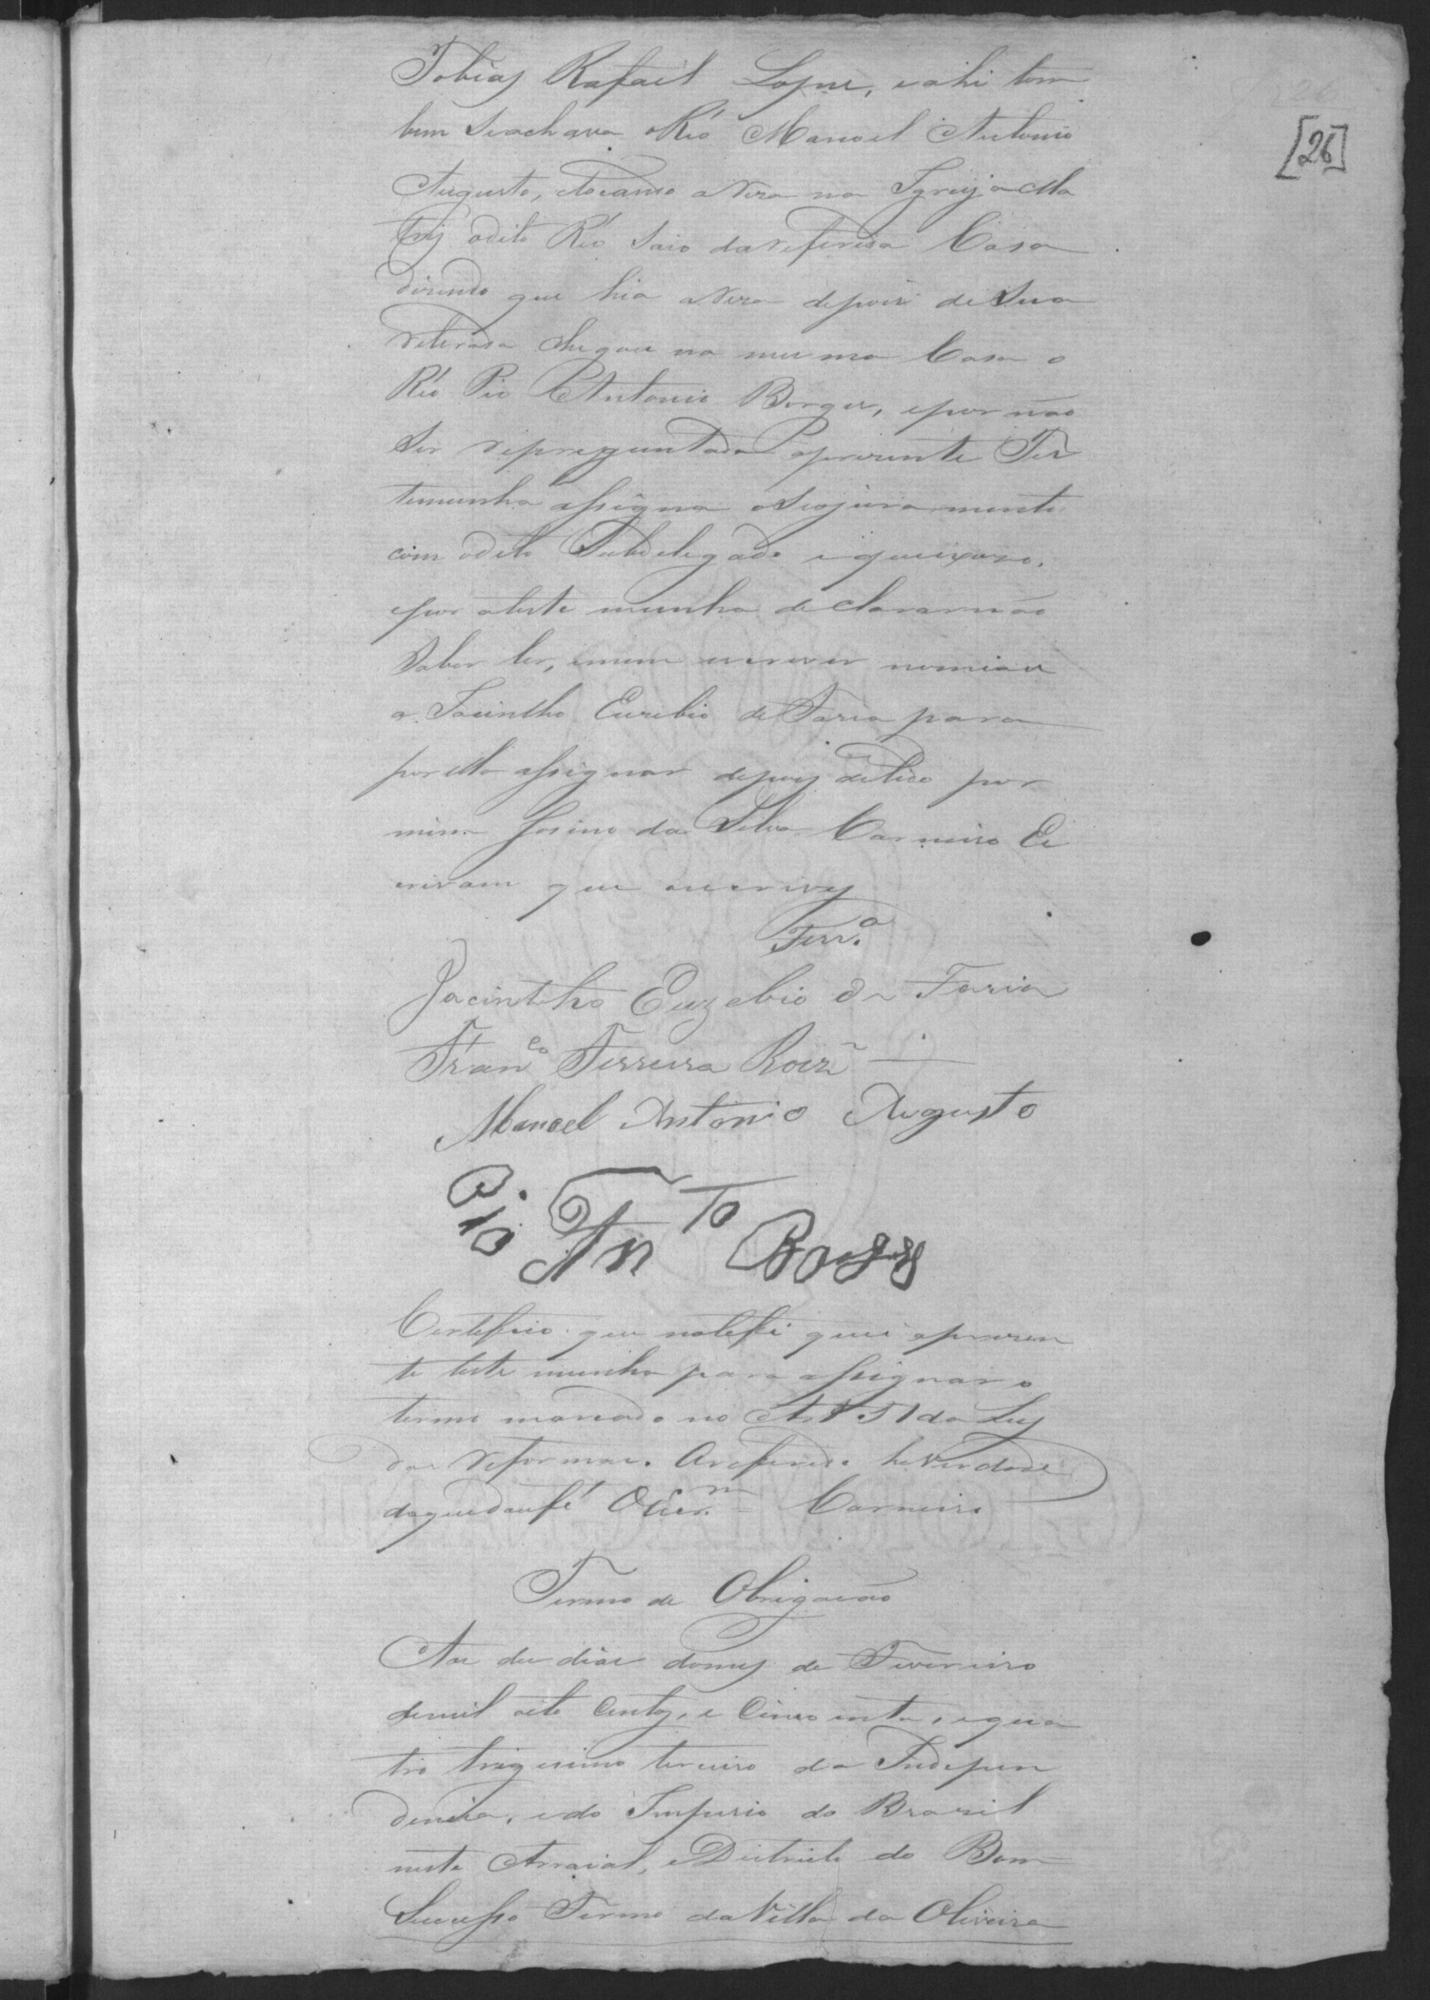 [26]
Tobias Rafael Lopes, e ahi tam
bem seachava o Réo Manoel Antonio
Augusto, e tocando a Nova na Igreja Ma
triz o dito Réo saio da referida Casa
disendo que hia a Nova depois de sua
retirada chegou na mesma Casa o
Réo Pio Antonio Borges, e por não
ser reperguntada a presente Tes
temunha assigna o seo juramento
com o dito Subdelegado e queixoso,
e por a teste munha declarar não
saber ler, e nem escrever nomiou
a Jacintho Euzebio de Faria para
por ella assignar depois de lido por
mim Josino da Silva Carneiro Es
crivam que escrivy
Ferr.ª
Jacintho Euzebio de Faria
Fran.co Ferreira Roiz
Manoel Antonio Augusto
Pio Anto Borges
Certifico que notefiquei apresen
te teste munha para assignar o
termo marcado no Art 51 da Ley
das reformas. O referido he verdade
do que dou fé O Escr.m Carneiro
Termo de Obrigacão
Aos des dias do mez de Fevereiro
de mil oito Centos, e Cincoenta, e qua
tro trigesimo terceiro da Indepen
dencia, e do Imperio do Brasil
neste Arraial, e Districto do Bom
Sucesso Termo da Villa da Oliveira